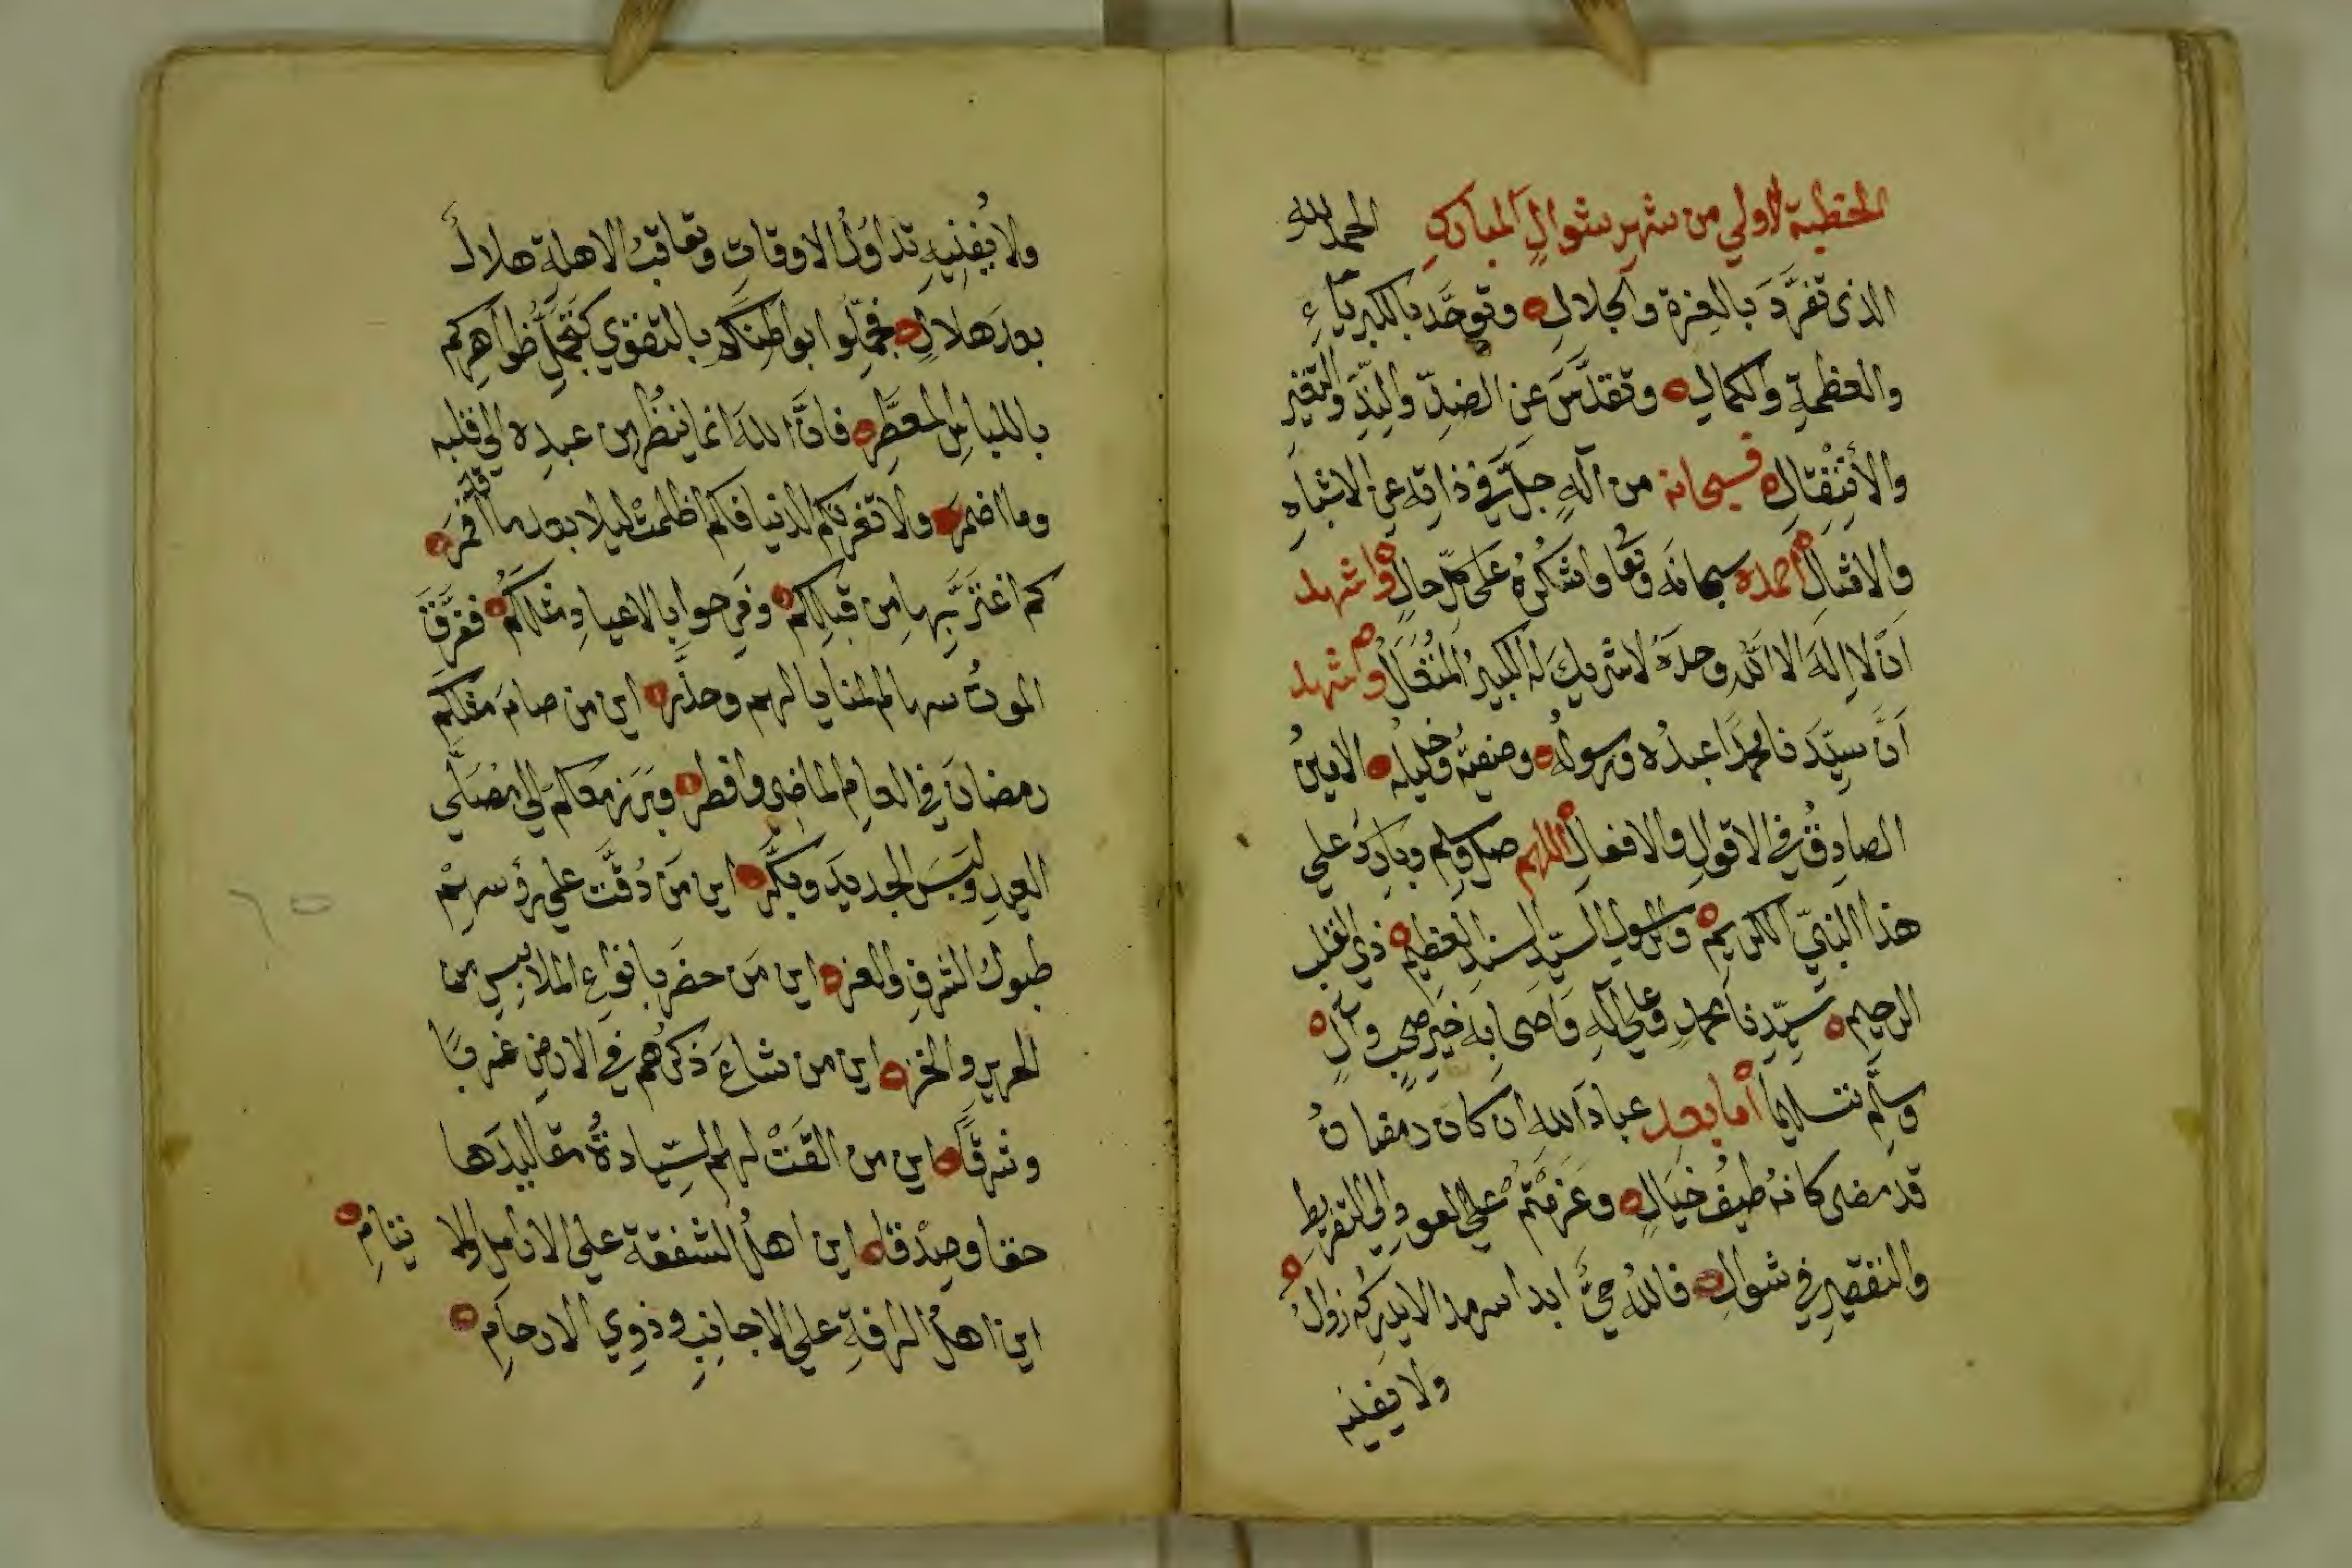 الخطبة الاولي من شهر شوال المبارك الحمد لله
الذى تفرَّدَ بالعزة والجلالِ وتوحَّد بالكبرياءِ
والعظمةِ والكمالِ وتقدَّسَ عن الضدِّ والنِدِّ والتغير
والأنتقالِ فسبحانه من آلهٍ جلَّ في ذاته عن الاشباهِ
والامثالِ أحمده سبحانَه وتعا واشكرُه على كل حالٍ واشهد
اَن لا اِلهَ الا الله وحدَهُ لا شريكَ له الكبيرُ المتعالُ واشهد
اَنَّ سيِّدَنا محمدًا عبدُه ورسولُه وصفيُّه وخليلُه الامينُ
الصادِقُ في الاقوالِ والافعالِ اللهم صل وسلم وبارك علي
هذا النبيِّ الكريمِ والرسولِ السيّدِ السندِ العظيمِ ذي القلب
الرحيم سيِّدِنا محمدٍ وعلي آلهِ وَاصحابِه خيرِ صحبٍ وآلٍ
وسلَّم تسليما أما بعد عبادَ اللهِ ان كان رمضانُ
قد مضى كانه طيفُ خَيالٍ وعَزمْتمْ علي العودِ الي التفريطِ
والتقصيرِ في شوالِ فاللهُ حيٌّ ابدا سرمدا لا يدركه زوالٌ
ولا يفنيه
ولا يُفنِيهِ تداوُلُ الاوقاتِ وتعاقبُ الاهلةِ هلالاً
بعدَ هلالٍ فجمِّلوا بواطنَكم بالتقوي كتجمُّلِ ظواهرِكم
باللباسِ المعطَّر فانَّ اللهَ انما ينظُر من عبدِه الي قلبه
وما اضمرَ ولا تغرنكم الدنيا فكم اظلمتْ ليلا بعد ما أقمرَ
كم اغترَّ بها من قبلِكم وفرحوا بالاعيادِ مثلكُم ففرَّقَ
الموتُ سهام المنايا لهم وحذَّر اين من صامَ مثلكم
رمضانَ في العامِ الماضى وافطر وبَرَزَ معكم الي مُصَلَّي
العيدِ ولبسَ الجديدَ وبكَّر اين مَن دُقَّت علي رؤسهمْ
طبولُ الشرفِ والعز اين مَن حضرَ بانواعِ الملابسِ من
الحريرِ والخز اين من شاعَ ذكرُهم في الارضِ غربًا
وشرقًا اين من القَتْ لهم السِّيادةُ مقاليدَها
حقا وصِدْقا اين اهلُ الشفقة علي الارامل والا يتامِ
اين اهلُ الرافةِ علي الاجانبِ وذوِي الارحامِ